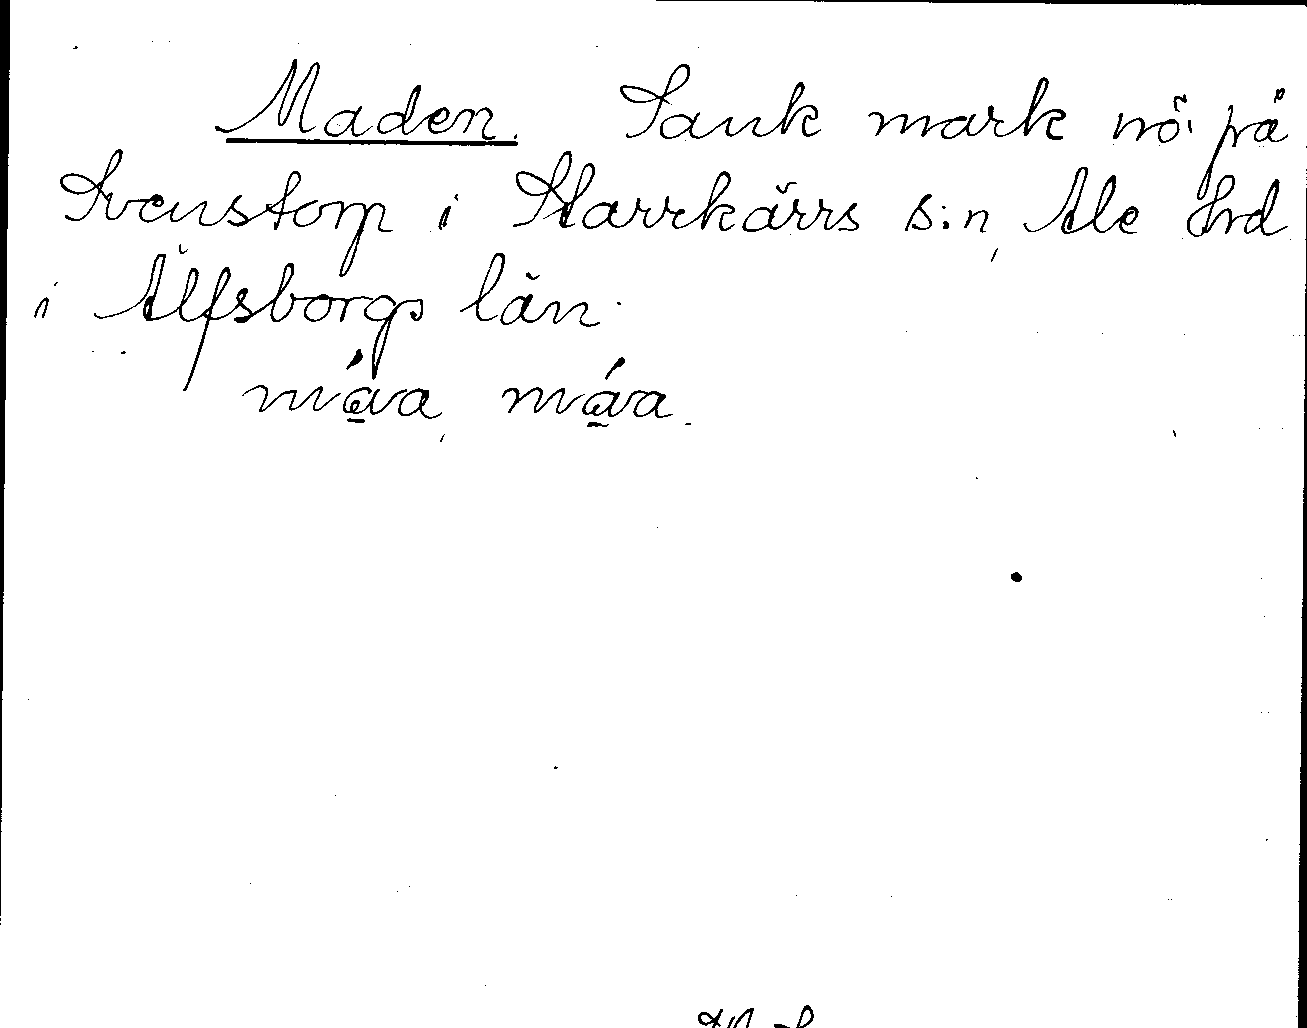 Maden. Sank mark nö. på
Svenstorp i Starrkärrs s:n, Ale hrd
i Älfsborgs län.